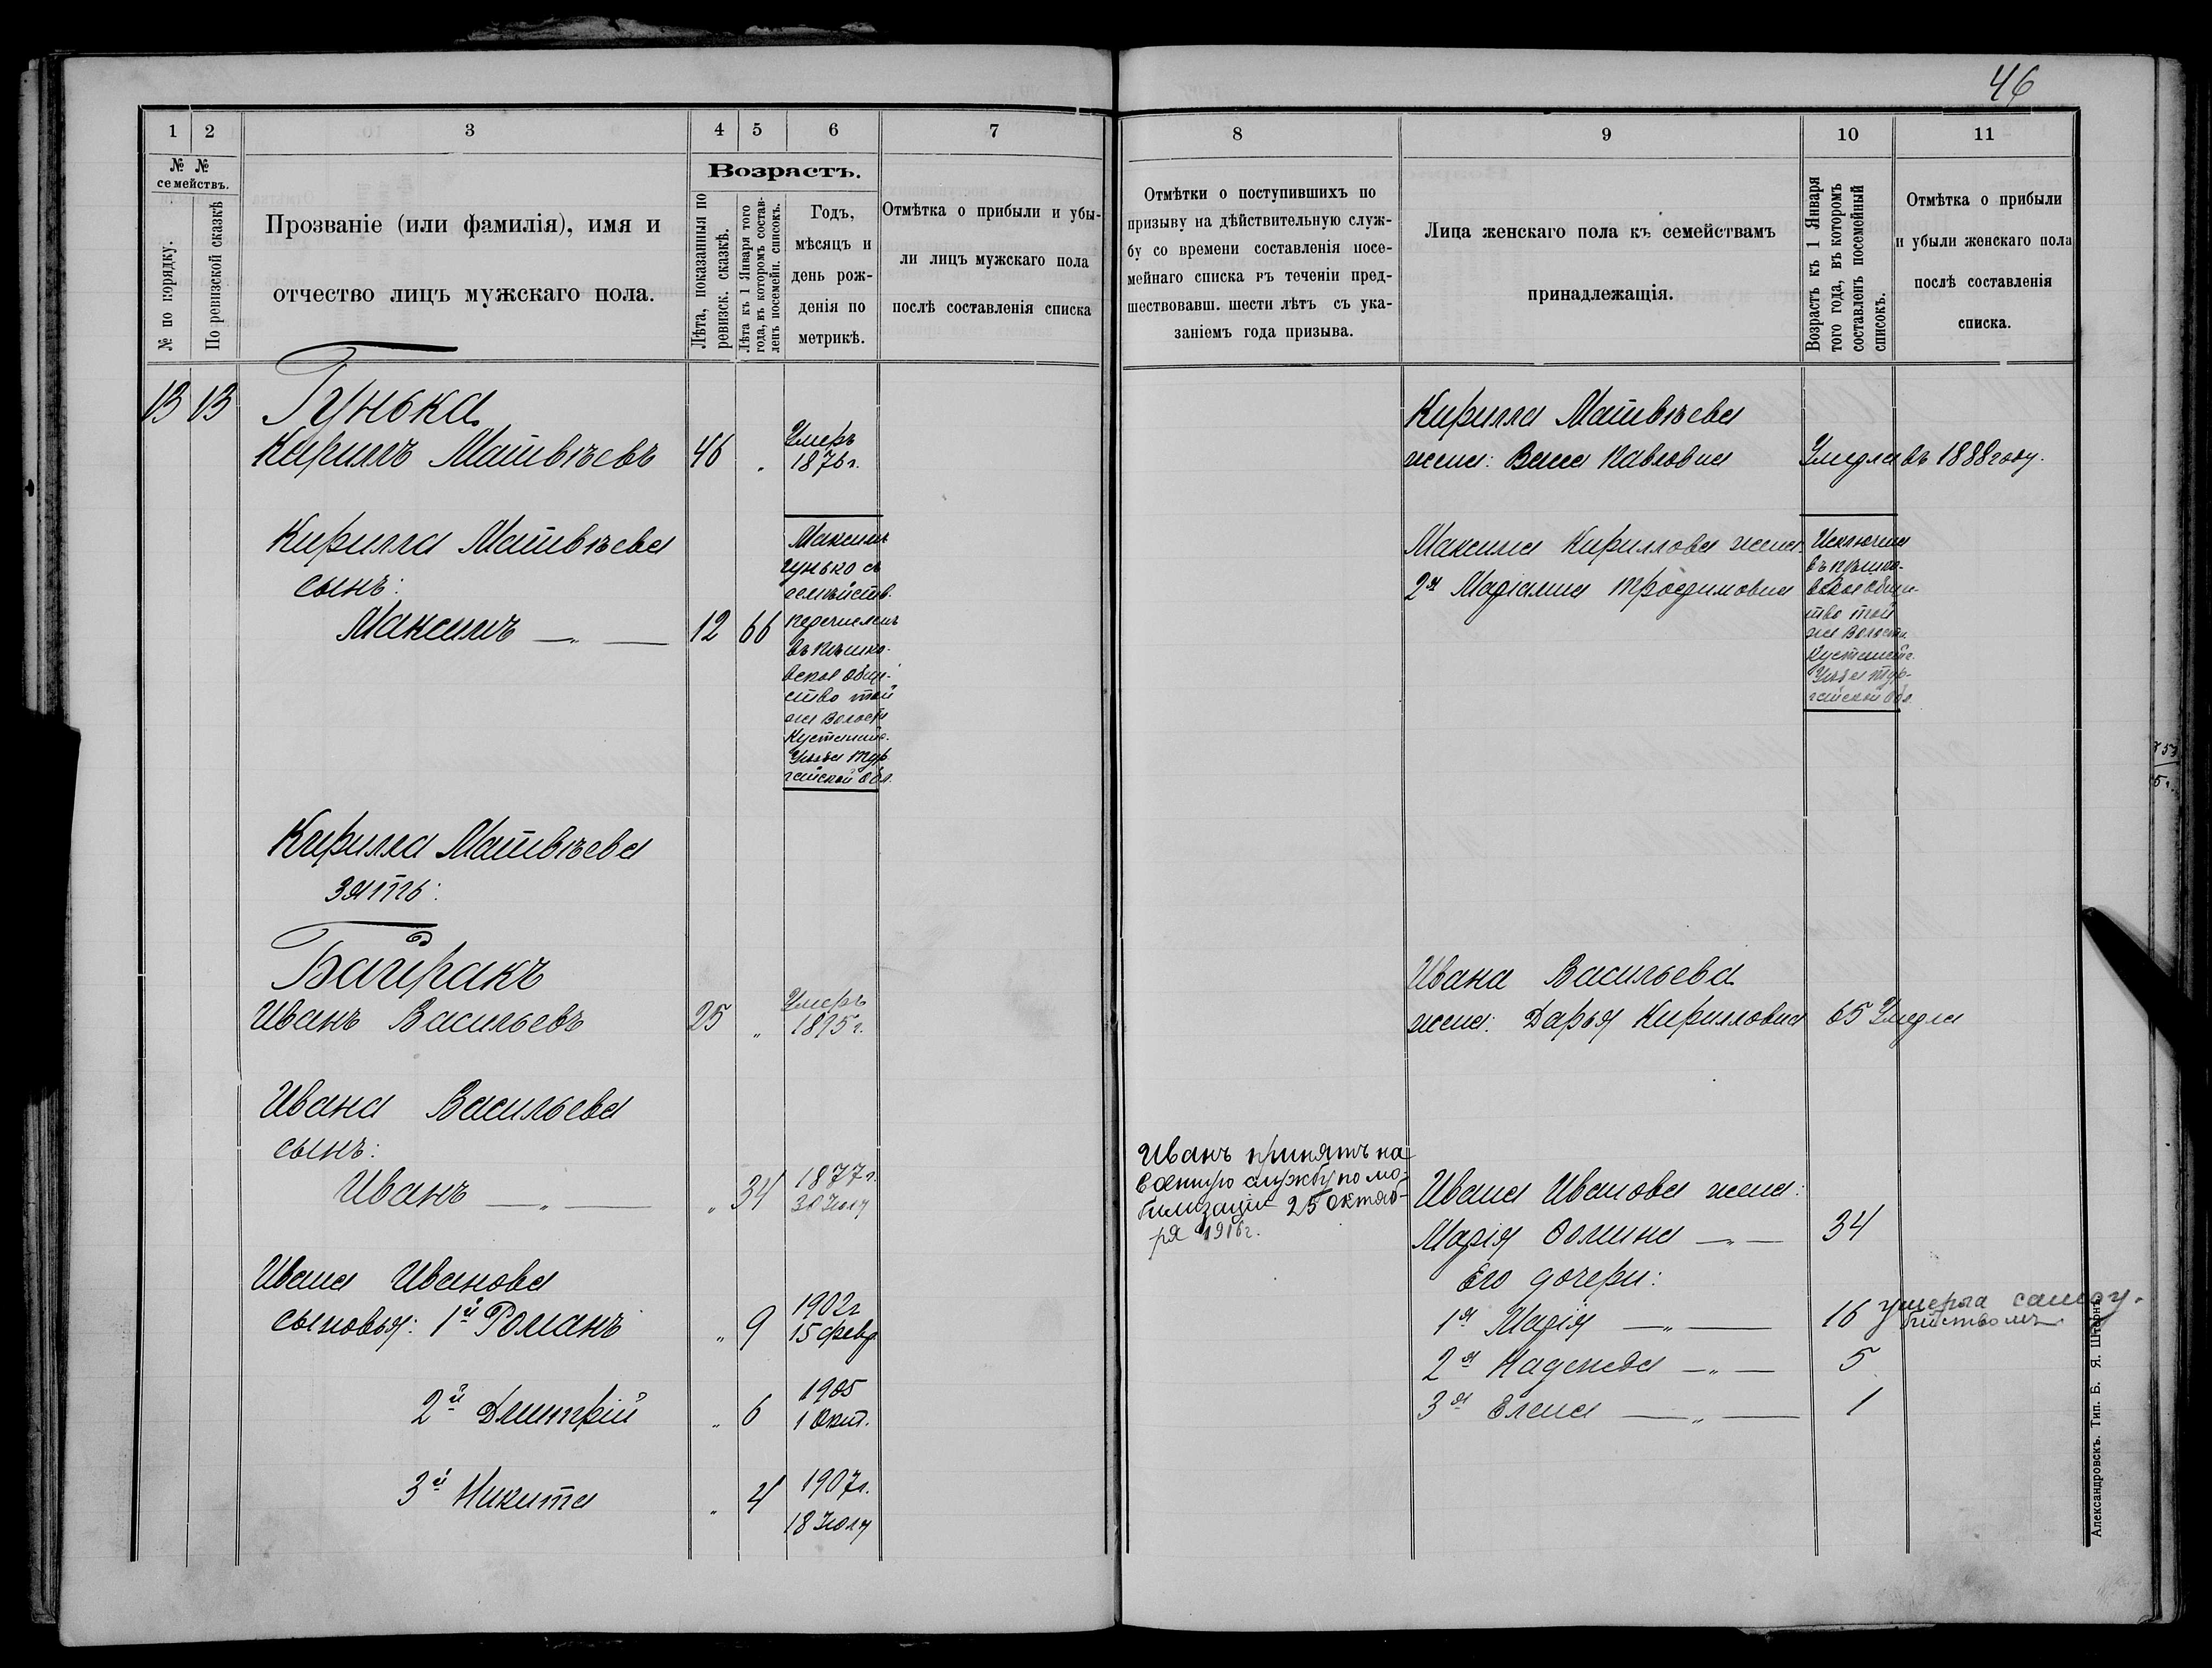 46
1 2 3 4 5 6 7
№ №
семействъ.
№ по порядку.
По ревизской сказкѣ
Прозваніе (или фамилія), имя и
отчество лицъ мужскаго пола.
Возрастъ.
Лѣта, показанныя по
ревизск. сказкѣ.
Лѣта къ 1 Января того
года, въ которомъ состав-
ленъ посемейн. списокъ.
Годъ,
мѣсяцъ и
день рож-
денія по
метрикѣ.
Отмѣтка о прибыли и убы-
ли лицъ мужскаго пола
послѣ составленія списка
13 13 Гунька
Кириллъ Матвѣевъ 46 „ Умеръ
1876 г.
Кирилла Матвѣева
сынъ:
Максимъ —„— 12 66
Максимъ
Гунько съ
семѣйств.
перечисленъ
въ
вское Общ-
ство той
же Волости
Кустанайс.
Уѣзда Тур-
гайской Обл.
Кирилла Матвѣева
зять:
Байракъ
Иванъ Васильевъ 25 „ Умеръ
1895 г.
Ивана Васильева
сынъ:
Иванъ —„— „ 34 1877 г.
30 Іюля
Ивана Иванова
сыновья: 1й Романъ „ 9 1902 г
15 февр
2й Дмитрій „ 6 1905
1 Окт.
3й Никита „ 4 1907 г.
18 Іюля
8 9 10 11
Отмѣтки о поступившихъ по
призыву на дѣйствительную служ-
бу со времени составленія посе-
мейнаго списка въ теченіи пред-
шествовавш. шести лѣтъ съ ука-
заніемъ года призыва.
Лица женскаго пола къ семействамъ
принадлежащія.
Возрастъ къ 1 Января
того года, въ которомъ
составленъ посемейный
списокъ.
Отмѣтка о прибыли
и убыли женскаго пола
послѣ составленія
списка.
Кирилла Матвѣева
жена: Васса Павловна Умерла въ 1888 году.
Максима Кириллова жена
2я Маріанна Трофимовна
Исключена
въ
вское Общ-
ство той
же Волости
Кустанайс.
Уѣзда Тур-
гайской Обл.
Ивана Васильева
жена: Дарья Кирилловна 65 Умерла
Иванъ принятъ на
военную службу по мо-
билизаціи 25 октяб-
ря 1916 г.
Ивана Иванова жена:
Марія Фомина —„— 34
Его дочери:
1я Марія —„— 16 умерла самоу-
бійствомъ
2я Надежда —„— 5
3я Елена —„— 1
Александровскъ. Тип. Б. Я. Штернъ.